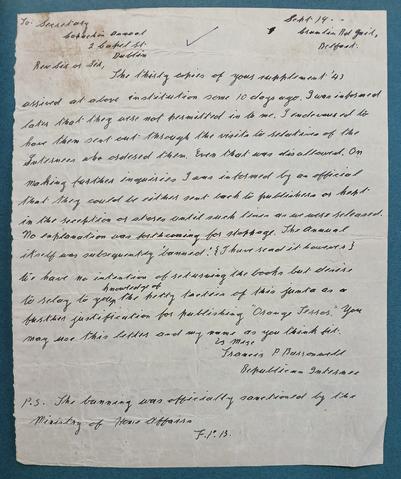 To: Secretary Sept. 14 -
Capuchin Annual Crumlin Rd Gaol,
2 Capel St. Belfast.
Dublin
Rev Sir or Sir,
The thirty copies of your supplement '43
arrived at above institution some 10 days ago. I was informed
later that they were not permitted in to me. I endeavored to
have them sent out through the visits to relatives of the
Internees who ordered them. Even that was disallowed. On
making further inquiries I was informed by an official
that they could be either sent back to publishers or kept
in the reception or stores until such time as we were released.
No explanation was forthcoming for stoppage. The Annual
itself was subsequently 'banned'! {I have read it however}
We have no intention of returning the books but desire
to relay to you knowledge of the petty tactics of this junta as a
further justification for publishing "Orange Terror." You
may use this letter and my name as you think fit.
Is Mise
Francis P
Republican Internee
P.S. The banning was officially sanctioned by the
Ministry of Home Affairs
F.P.B.